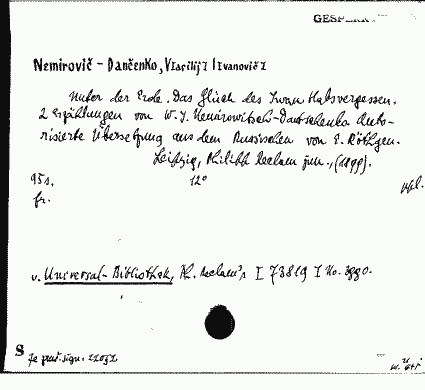 Nemirovič-Dančenko, V[asilij] I[vanovič]
Unter der Erde. Das Glück des Iwan Habsvergessen.
2 Erzählungen von W. J. Nemirowitsch-Dantschenko Auto-
risierte Übersetzung aus dem Russischen von E. Röthgen.
Leipzig, Philipp Reclam jun., (1899).
95s. 12°
fr.
v. Universal-Bibliothek, Ph. Reclam's I 73819 I No. 3990.
S